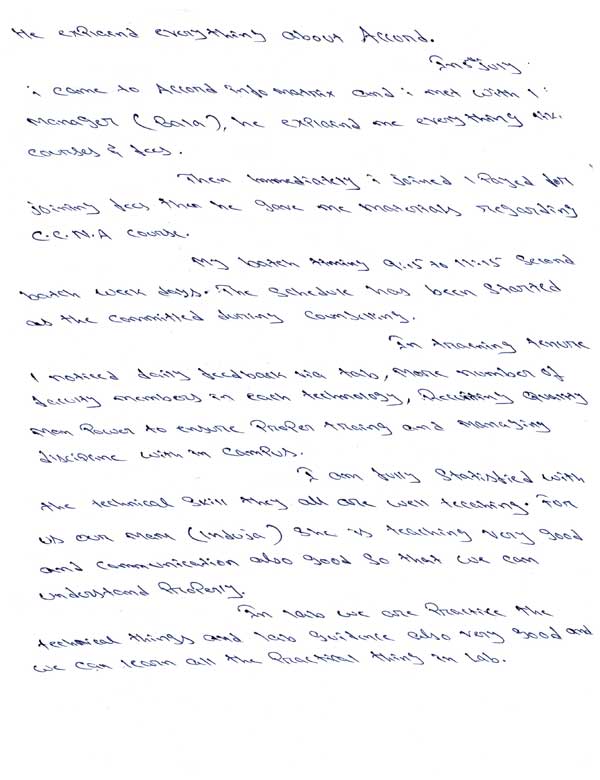 He explaend everything about Accord.
In 5th July.
i came to Accord info matrix and i met with 1
Manager (Bala), he explaind me everything
courses & fees.
Then immediately i joined I Payed for
joining fees then he gave me materials regarding
C.C.N.A course.
My batch timing 9:15 to 11:15 second
batch week days. The schedule has been started
as the committed during counselling.
In training tenure
I noticed daily feedback via tab, more number of
faculty members in each technology, Quality
man Power to ensure Proper traing and managing
disciprine with in campus.
I am fully statisfied with
the technical skill they all are well tecahing. For
us our mam (Induja) she is teaching very good
and communication also good so that we can
understand Properly.
In lab we are Practice the
technical things and lab guidence also very good and
we can learn all the Practical thing in lab.